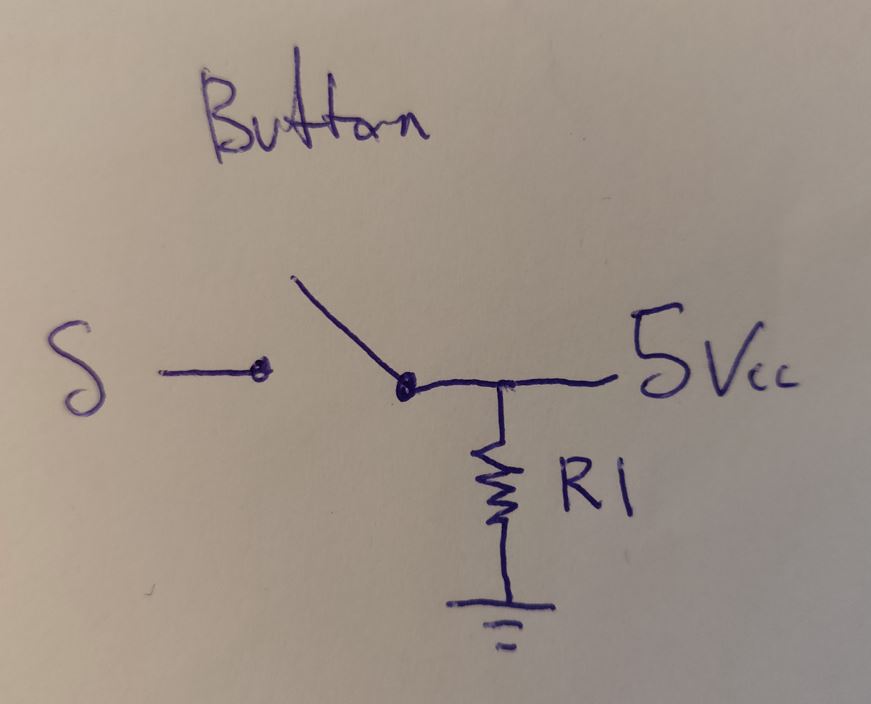 Button
S
5Vcc
R1